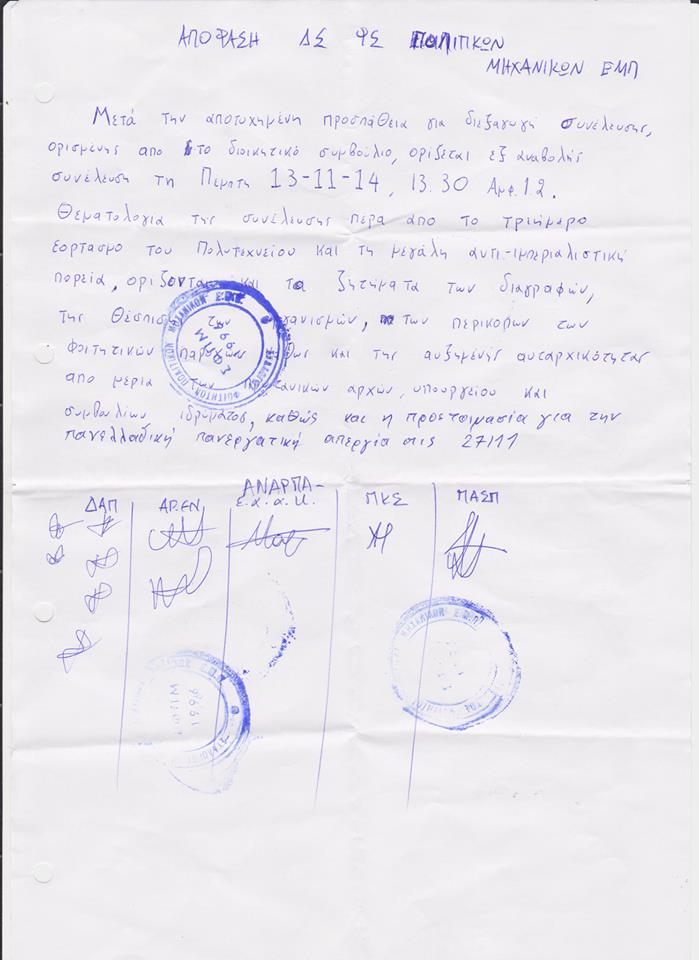 ΑΠΟΦΑΣΗ ΔΣ ΦΣ ΠΟΛΙΤΙΚΩΝ
ΜΗΧΑΝΙΚΩΝ ΕΜΠ
Μετά την αποτυχημένη προσπάθεια για διεξαγωγή συνέλευσης,
ορισμένης από το διοικητικό συμβούλιο, ορίζεται εξ αναβολής
συνέλευση τη Πέμπτη 13-11-14, 13.30 Αμφ.12.
Θεματολογία της συνέλευσης πέρα από το τριήμερο
εορτασμο του Πολυτεχνείου και τη μεγάλη αντι-ιμπεριαλιστική
πορεία, ορίζονται και τα ζητήματα των διαγραφών,
της των των περικοπών των
φοιτητικών και της αυξημένης αυταρχικότητας
από μεριά των αρχών, υπουργείου και
συμβουλίων ιδρύματος, καθώς και η προετοιμασία για την
πανελλαδική πανεργατική απεργία στις 27/11
ΔΑΠ ΑΡ.ΕΝ ΑΝΑΡΠΑ-
ε.α.α.κ. ΠΚΣ ΠΑΣΠ
ΦΟΙΤΗΤΩΝ ΠΟΛΙΤΙΚΩΝ ΜΗΧΑΝΙΚΩΝ Ε.Μ.Π.